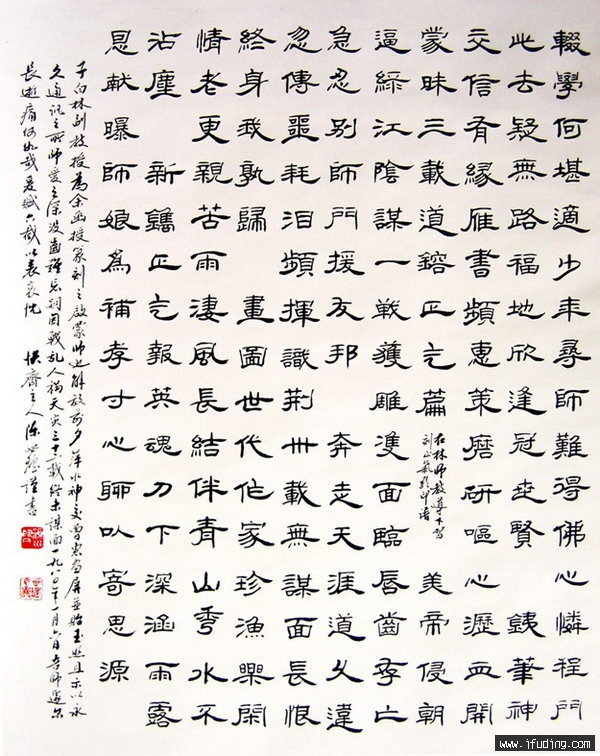 輟學何堪適少年尋師難得佛心憐程門
此去疑無路福地欣逢冠世賢 銕筆神
交信有緣雁書頻惠策磨研嘔心瀝血開
蒙昧三載道鎔正气篇 美帝侵朝
在林師教導下習
刻正氣歌印譜
逼綠江陰謀一戰獲雕雙面臨唇齒存亡
急忍別師門援友邦 奔走天涯道久違
忽傳噩耗泪頻揮識荆卅載無謀面長恨
終身我孰歸 畫圖世代作家珍漁樂閑
情老更親苦雨淒風長結伴青山秀水不
沾塵 新鐫正气報英魂刀下深涵雨露
恩献曝師娘為補孝寸心聊以寄思源
子白林副教授為余函授篆刻之啟蒙師也解放前夕萍水神交曾惠画屏並貽玉照且示以永
久通訊之所師愛之深没齒難忘嗣因戰乱人禍天災三十載終未謀面一九八〇年一月六日吉師遽尔
長逝痛何如哉爰賦六截以表哀忱 齋主人陳世 謹書
www.ifuding.com